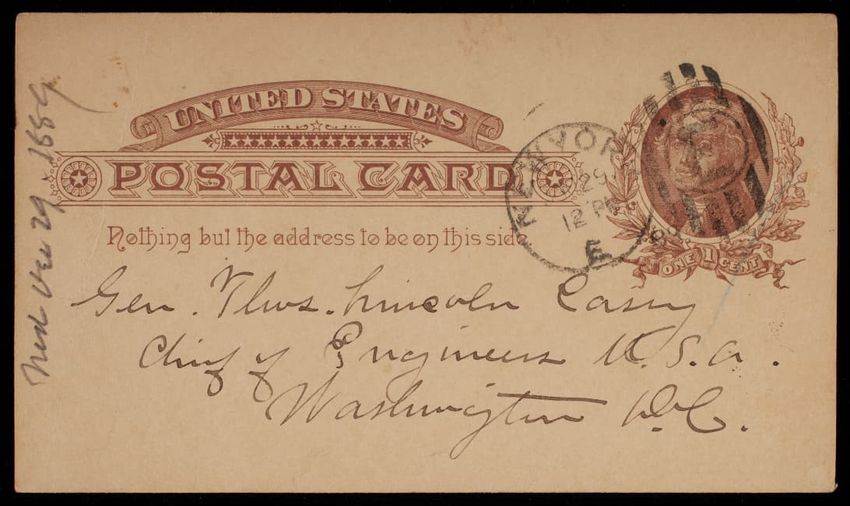 UNITED STATES
POSTAL CARD
Nothing but the address to be on this side
NEW YOR
29
12 PM
E
ONE 1 CENT
Gen. Thos. Lincoln Casey
Chief of Engineers U.S.A.
Washington D.C.
Dec 29. 1889